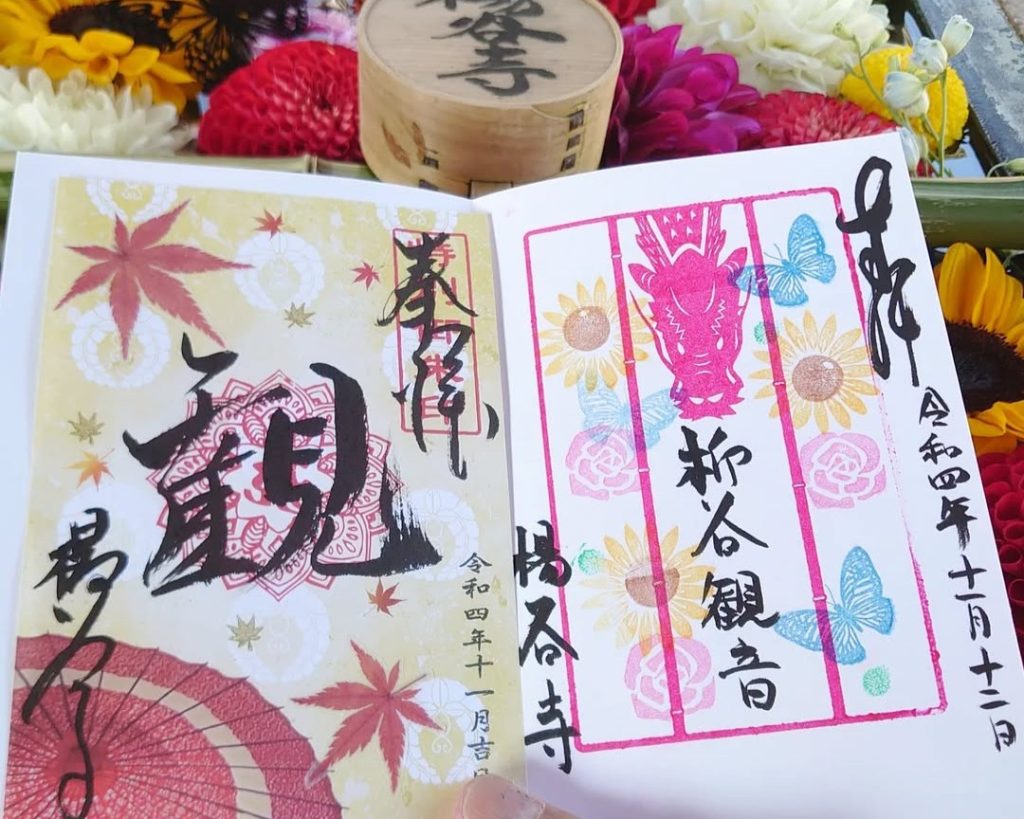 楊谷寺
奉拝
令和四年十一月十二日
柳谷観音
楊谷寺
奉拝
令和四年十一月吉日
観
楊谷寺